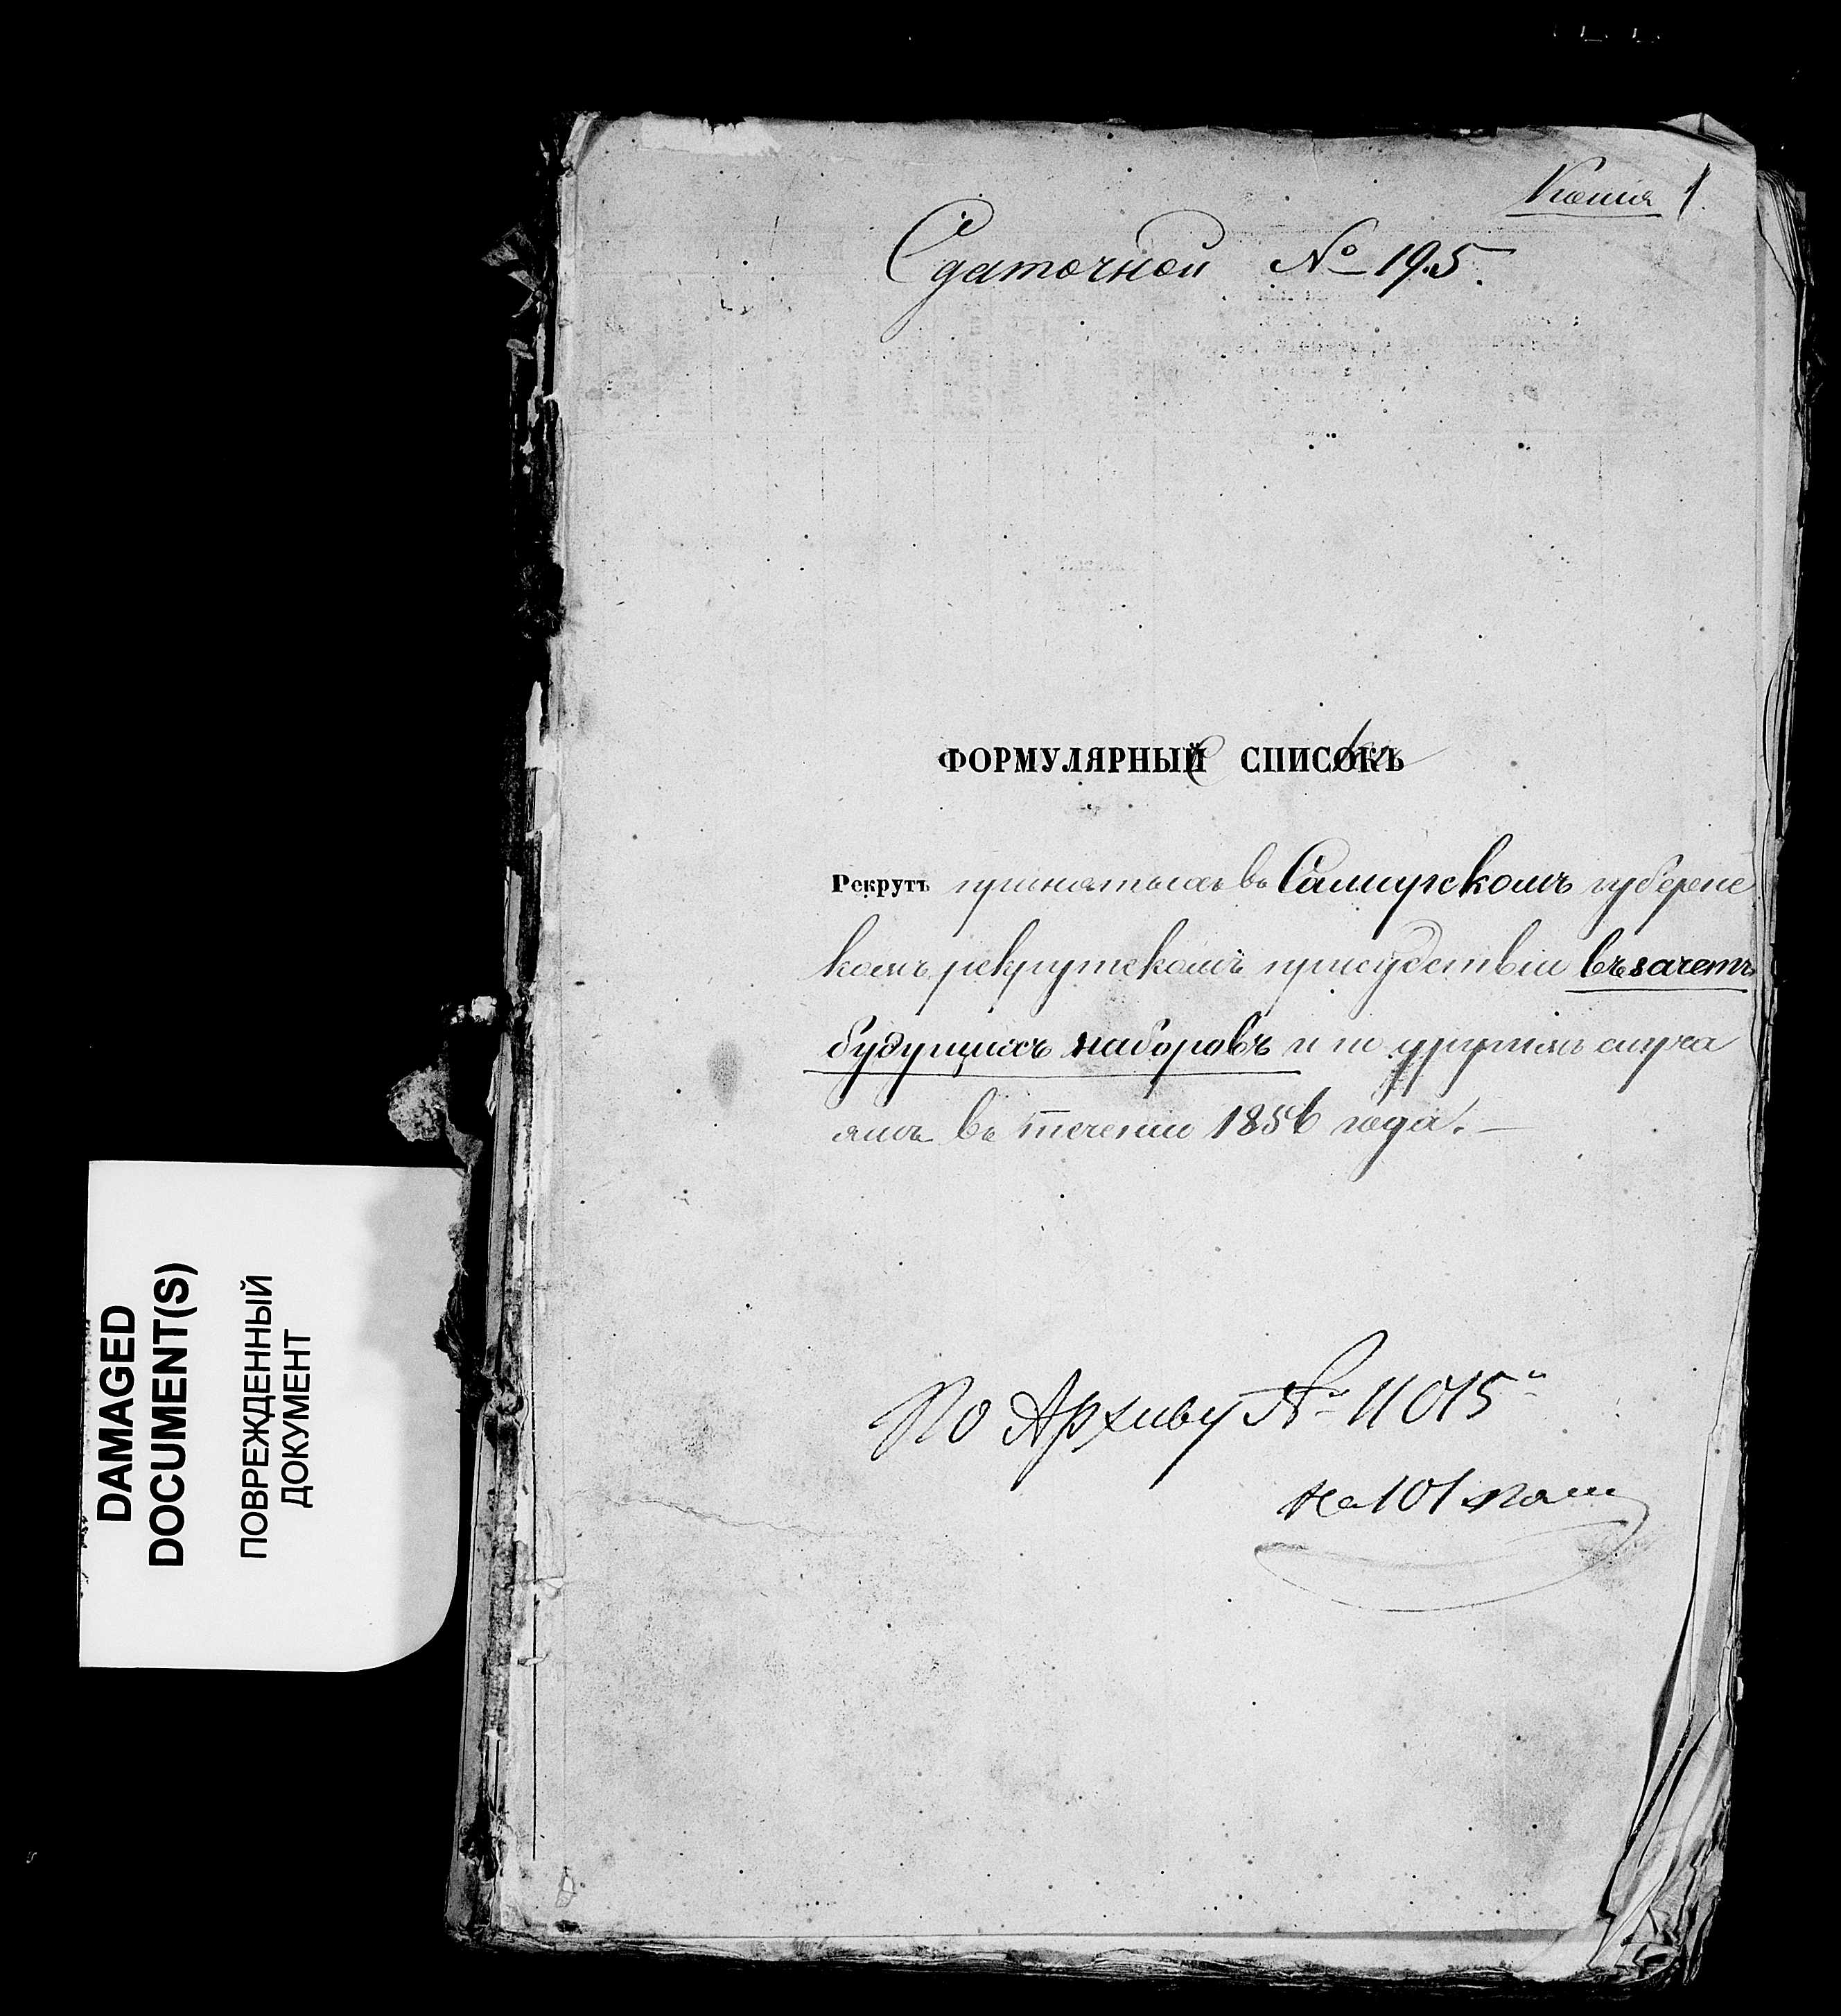 Копія 1
Сдаточной № 195.
ФОРМУЛЯРНЫЙ СПИСОКЪ
Рекрутъ принятыхъ въ губернс
комъ рекрутскомъ присудствіи въ зачетъ
будущихъ наборовъ и по другимъ случа
ямъ въ теченіи 1856 года.
По Архиву № 11015
на 101 лист
DAMAGED
DOCUMENT(S)
ПОВРЕЖДЕННЫЙ
ДОКУМЕНТ